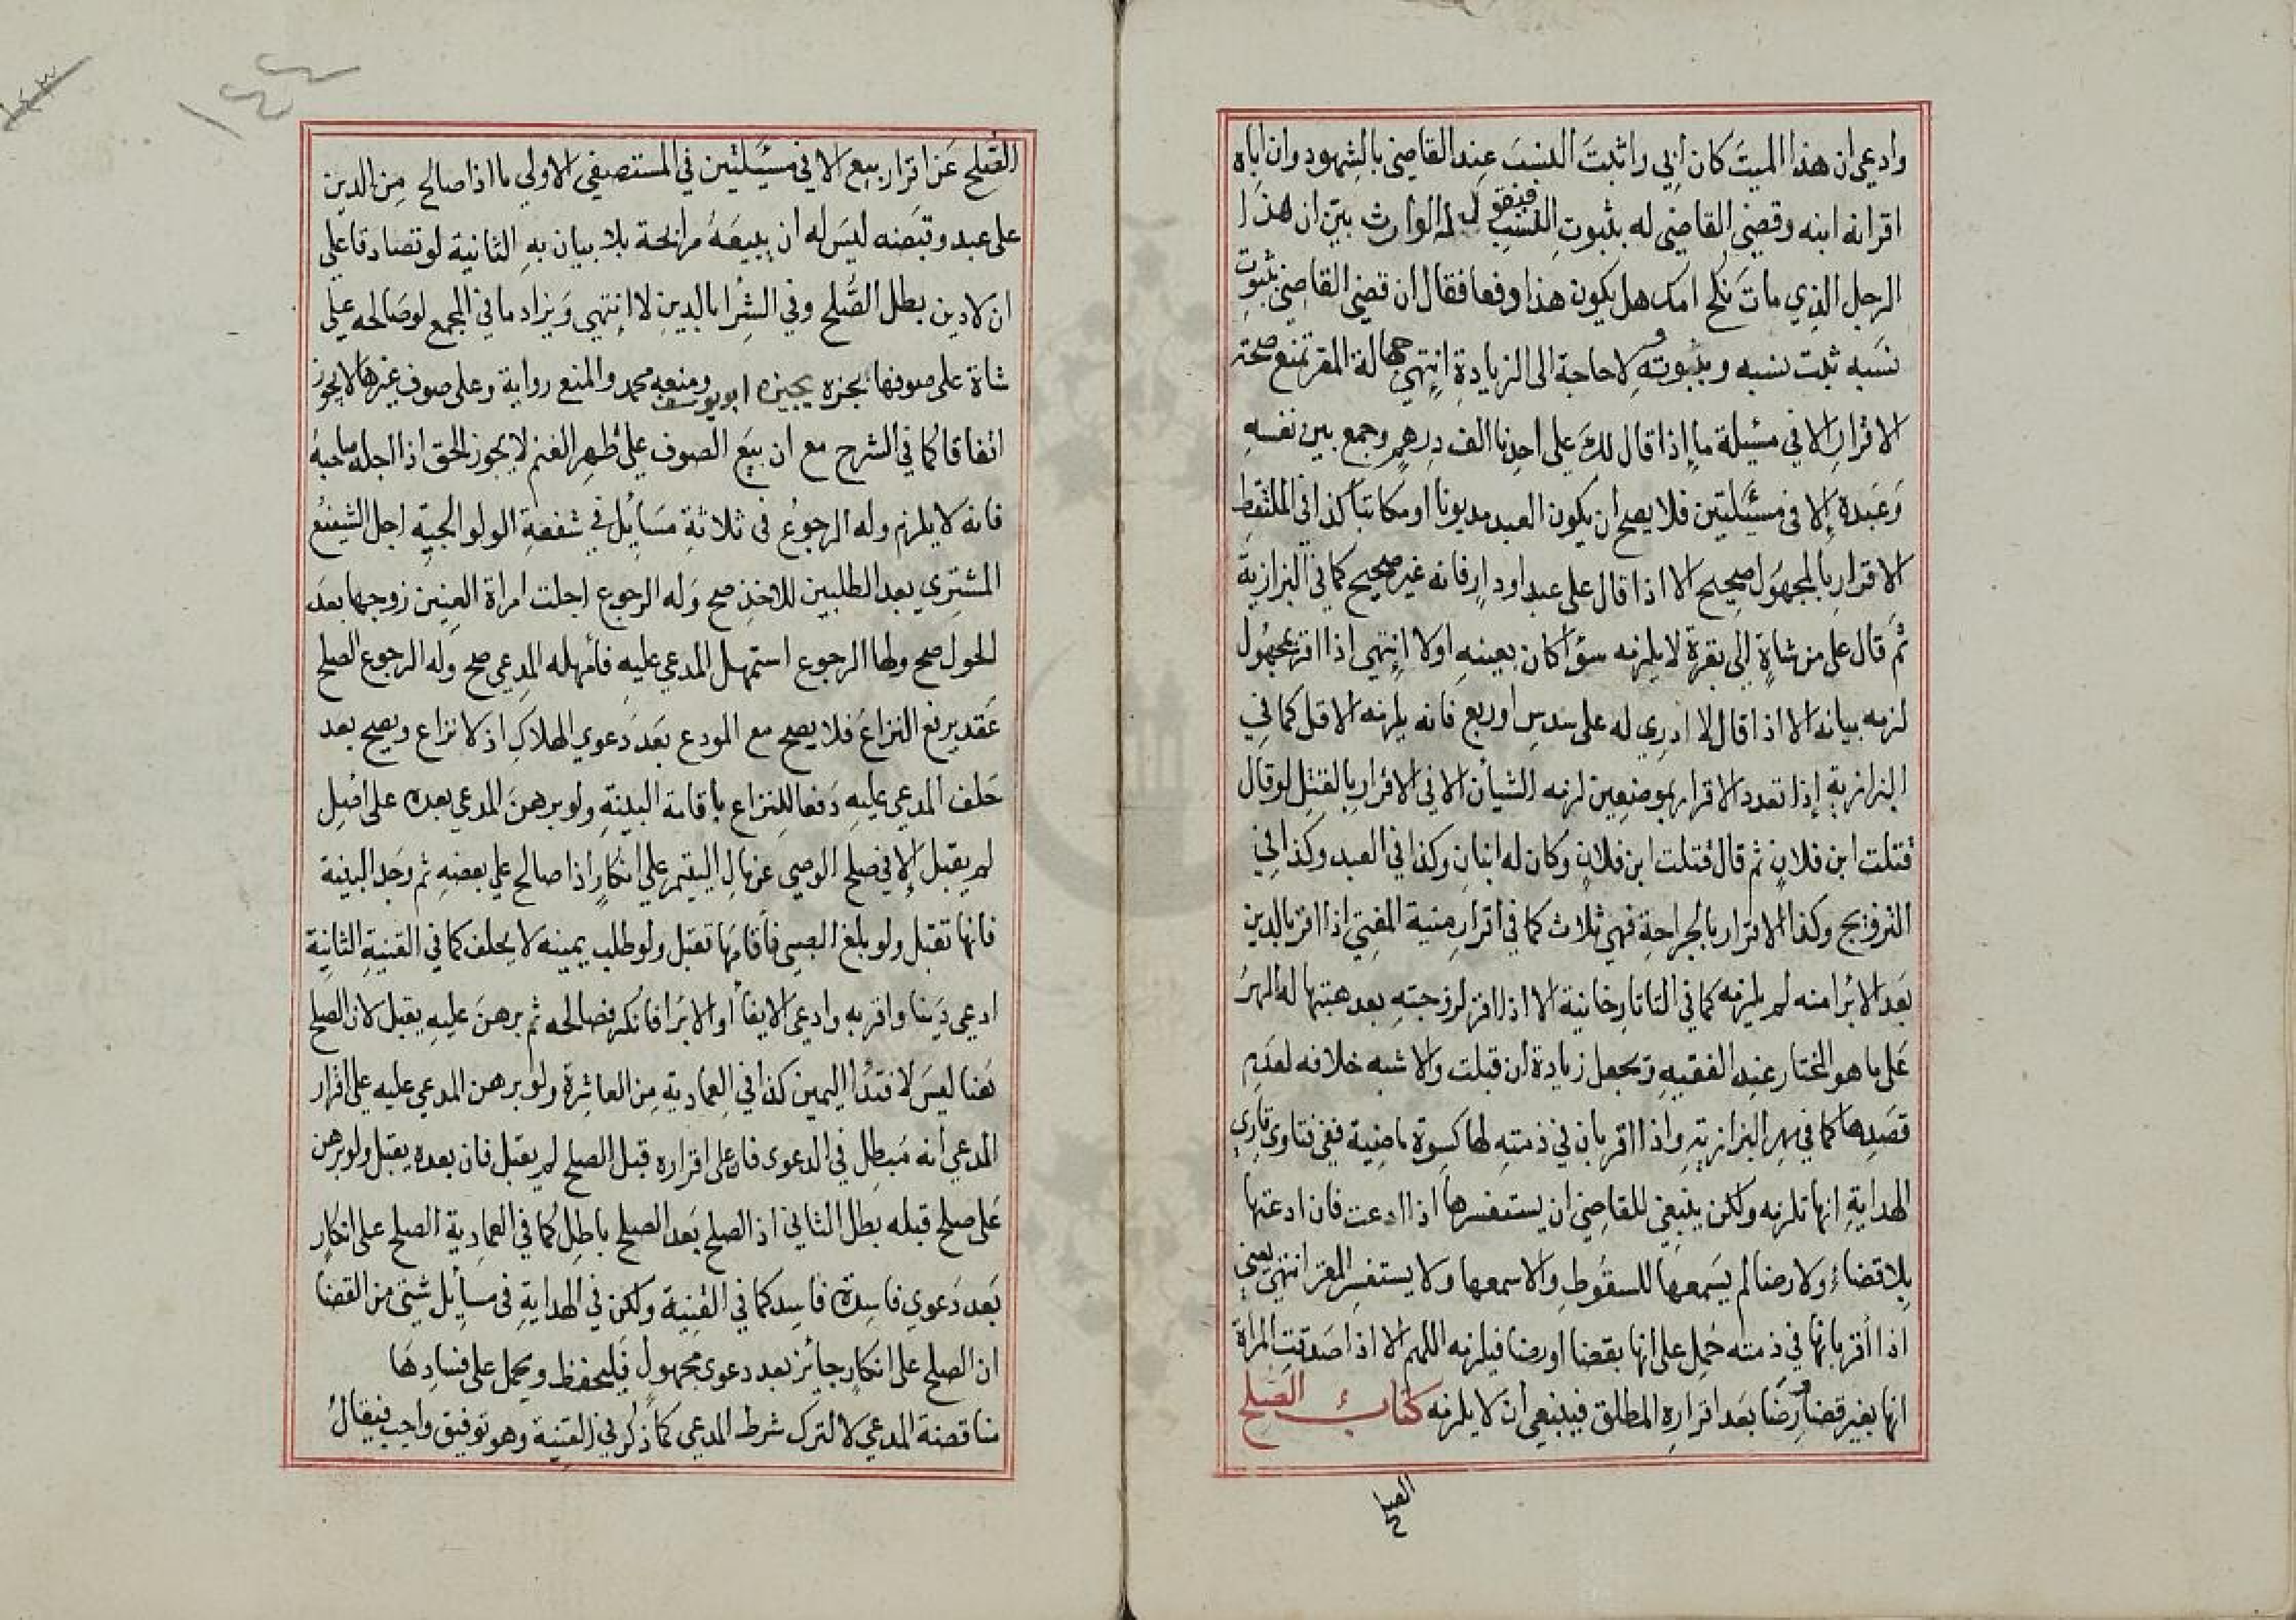 وادعي ان هذا الميت كان ابي واثبت النسب عند القاضي بالشهود وان اباه
اقر انه ابنه وقضي القاضي له بثبوت النسب فيقول له الوارث بين ان هذا
الرجل الذي مات نكح امك هل يكون هذا دفعا فقال ان قضي القاضي بثبوت
نسبه ثبت نسبه وبنوته ولا حاجة الى الزيادة انتهي جهالة المقر تمنع صحة
الاقرار الا في مسئلة ما اذا قال لك على احدنا الف درهم وجمع بين نفسه
وعبده الا في مسئلتين فلا يصح ان يكون العبد مديونا او مكاتبا كذا في الملتقط
الاقرار بالمجهول صحيح الا اذا قال على عبد او دار فانه غير صحيح كما في البزازية
ثم قال على من شاة الى بقرة لا يلزمه سوٓا كان بعينه او لا انتهي اذا اقر بمجهول
لزمه بيانه الا اذا قال لا ادري له على سدس او ربع فانه يلزمه الاقل كما في
البزازية إذا تعدد الاقرار بموضعين لزمه الشيأن الا في الاقرار بالقتل لو قال
قتلت ابن فلان ثم قال قتلت ابن فلان وكان له ابنان وكذا في العبد وكذا في
التزويج وكذا الاقرار بالجراحة فهي ثلاث كما في اقرار منية المفتي اذا اقر بالدين
بعد الابرا منه لم يلزمه كما في التاتارخانية الا اذا اقر لزوجته بعد هبتها له المهر
على ما هو المختار عند الفقيه ويجعل زيادة ان قبلت والاشبه خلافه لعدم
قصدها كما في مهر البزازية واذا اقر بان في ذمته لها كسوة ماضية ففي فتاوي قاري
الهداية انها تلزمه ولكن ينبغي للقاضي ان يستفسرها اذا ادعت فان ادعتها
بلا قضاء ولا رضا لم يسمعها للسقوط والا سمعها ولا يستفسر المقر انتهي يعني
اذا أقر بانها في ذمته حمل على انها بقضا او رضا فيلزمه اللهم الا اذا صدقت المراة
انها بغير قضا ورضا بعد اقراره المطلق فينبغي ان لا يلزمه كتاب الصلح
الصلح
١٤٤
١٤٣
الصلح عن اقرار بيع الا في مسئلتين في المستصفي الاولي ما اذا صالح من الدين
على عبد وقبضه ليس له ان يبيعه مرابحة بلا بيان به الثانية لو تصادقا على
ان لا دين بطل الصلح وفي الشرا بالدين لا انتهي ويزاد ما في المجمع لو صالحه على
شاة على صوفها بجزه يجيزه ابو يوسف ومنعه محمد والمنع رواية وعلى صوف غيرها لا يجوز
اتفاقا كما في الشرح مع ان بيع الصوف على ظهر الغنم لا يجوز الحق اذا اجله صاحبه
فانه لا يلزم وله الرجوع في ثلاثة مسايل في شفعة الولوالجية اجل الشفيع
المشتري بعد الطلبين للاخذ صح وله الرجوع اجلت امراة العنين زوجها بعد
الحول صح ولها الرجوع استمهل المدعي عليه فأمهله المدعي صح وله الرجوع الصلح
عقد يرفع النزاع فلا يصح مع المودع بعد دعوي الهلاك اذ لا نزاع ويصح بعد
حلف المدعي عليه دفعا للنزاع باقامة البينة ولو برهن المدعي بعده على اصل
لم يقبل الا في صلح الوصي عن مال اليتيم على انكار اذا صالح على بعضه ثم وجد البينة
فانها تقبل ولو بلغ الصبي فأقامها تقبل ولو طلب يمينه لا يحلف كما في القنية الثانية
ادعي دينا واقر به وادعي الايفأ او الابرا فانكر فصالحه ثم برهن عليه يقبل لان الصلح
هنا ليس لافتدٓا اليمين كذا في العمادية من العاشرة ولو برهن المدعي عليه على اقرار
المدعي أنه مبطل في الدعوى فان على اقراره قبل الصلح لم يقبل فان بعده يقبل ولو برهن
على صلح قبله بطل الثاني اذ الصلح بعد الصلح باطل كما في العمادية الصلح على انكار
بعد دعوي فاسدة فاسد كما في القنية ولكن في الهداية في مسأيل شتي من القضا
ان الصلح على انكار جائز بعد دعوى مجهول فليحفظ ويحمل على فسادها
مناقضة المدعي لا لترك شرط المدعي كما ذكر في القنية وهو توفيق واجب فيقال